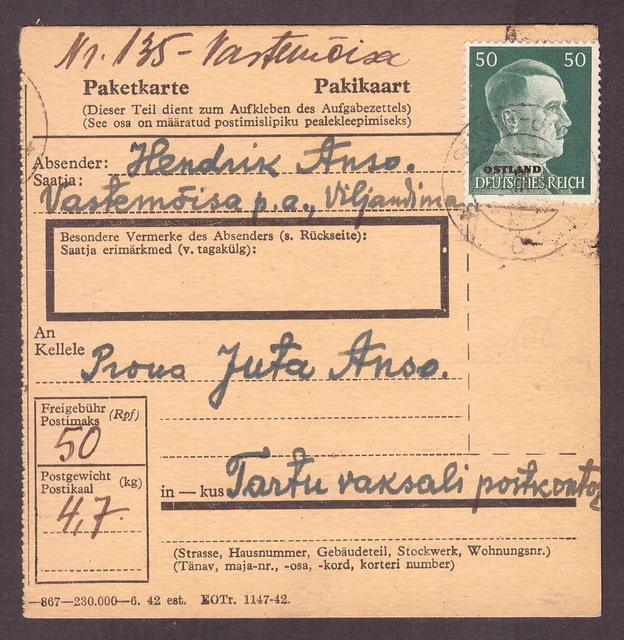 Nr. 135 - Vastemõisa
50 50
Paketkarte Pakikaart
(Dieser Teil dient zum Aufkleben des Aufgabezettels)
(See osa on määratud postimislipiku pealekleepimiseks)
OSTLAND
DEUTSCHES REICH
Absender: Hendrik Anso.
Saatja:
Vastemõisa p.a., Viljandima
Besondere Vermerke des Absenders (s. Rückseite):
Saatja erimärkmed (v. tagakülg):
An
Kellele Proua Juta Anso.
Freigebühr (Rpf)
Postimaks
50
Postgewicht (kg)
Postikaal
4,7.
in — kus Tartu vaksali postkontor
(Strasse, Hausnummer, Gebäudeteil, Stockwerk, Wohnungsnr.)
(Tänav, maja-nr., -osa, -kord, korteri number)
867—230.000—6. 42 est. EOTr. 1147-42.